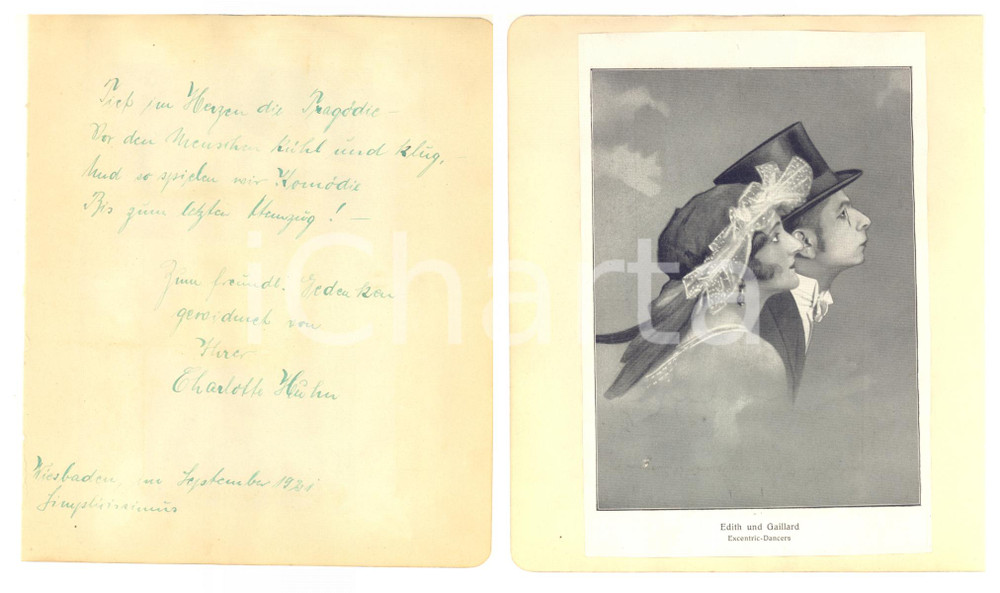 Tief im Herzen die Tragödie –
Vor den Menschen kühl und klug, –
Und so spielen wir Komödie
Bis zum letzten Atemzug! –
Zum freundl. Gedenken
gewidmet von
Ihrer
Charlotte Huhn
Wiesbaden, im September 1921
Simplicissimus
iCharta
Edith und Gaillard
Excentric-Dancers